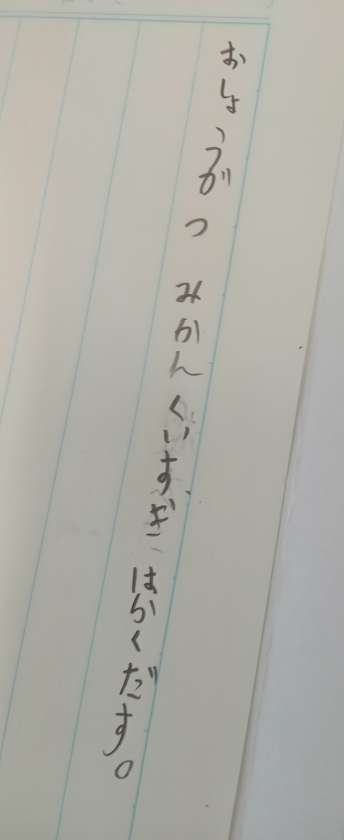 おしょうがつ みかんくいすぎ はらくだす。